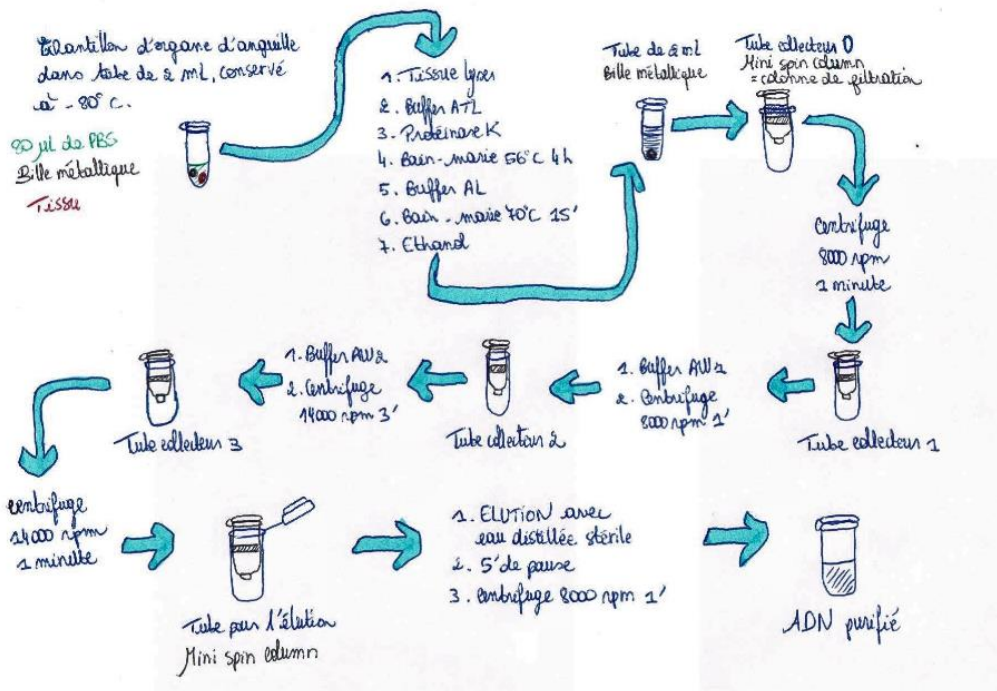 Echantillon d'organe d'anguille
dans tube de 2 mL, conservé
à -80°C.
80 µl de PBS
Bille métallique
Tissu
1. Tissue lyser
2. Buffer ATL
3. Protéinase K
4. Bain-marie 56°C 4h
5. Buffer AL
6. Bain-marie 70°C 15'
7. Ethanol
Tube de 2 mL
Bille métallique
Tube collecteur 0
Mini spin column
= colonne de filtration
Centrifuge
8000 rpm
1 minute
Tube collecteur 1
1. Buffer AW1
2. Centrifuge
8000 rpm 1'
Tube collecteur 2
1. Buffer AW2
2. Centrifuge
14000 rpm 3'
Tube collecteur 3
Centrifuge
14000 rpm
1 minute
Tube pour l'élution
Mini spin column
1. ELUTION avec
eau distillée stérile
2. 5' de pause
3. Centrifuge 8000 rpm 1'
ADN purifié